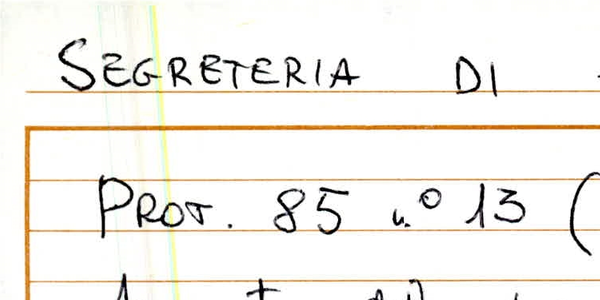 SEGRETERIA DI
PROT. 85 n.º 13 (